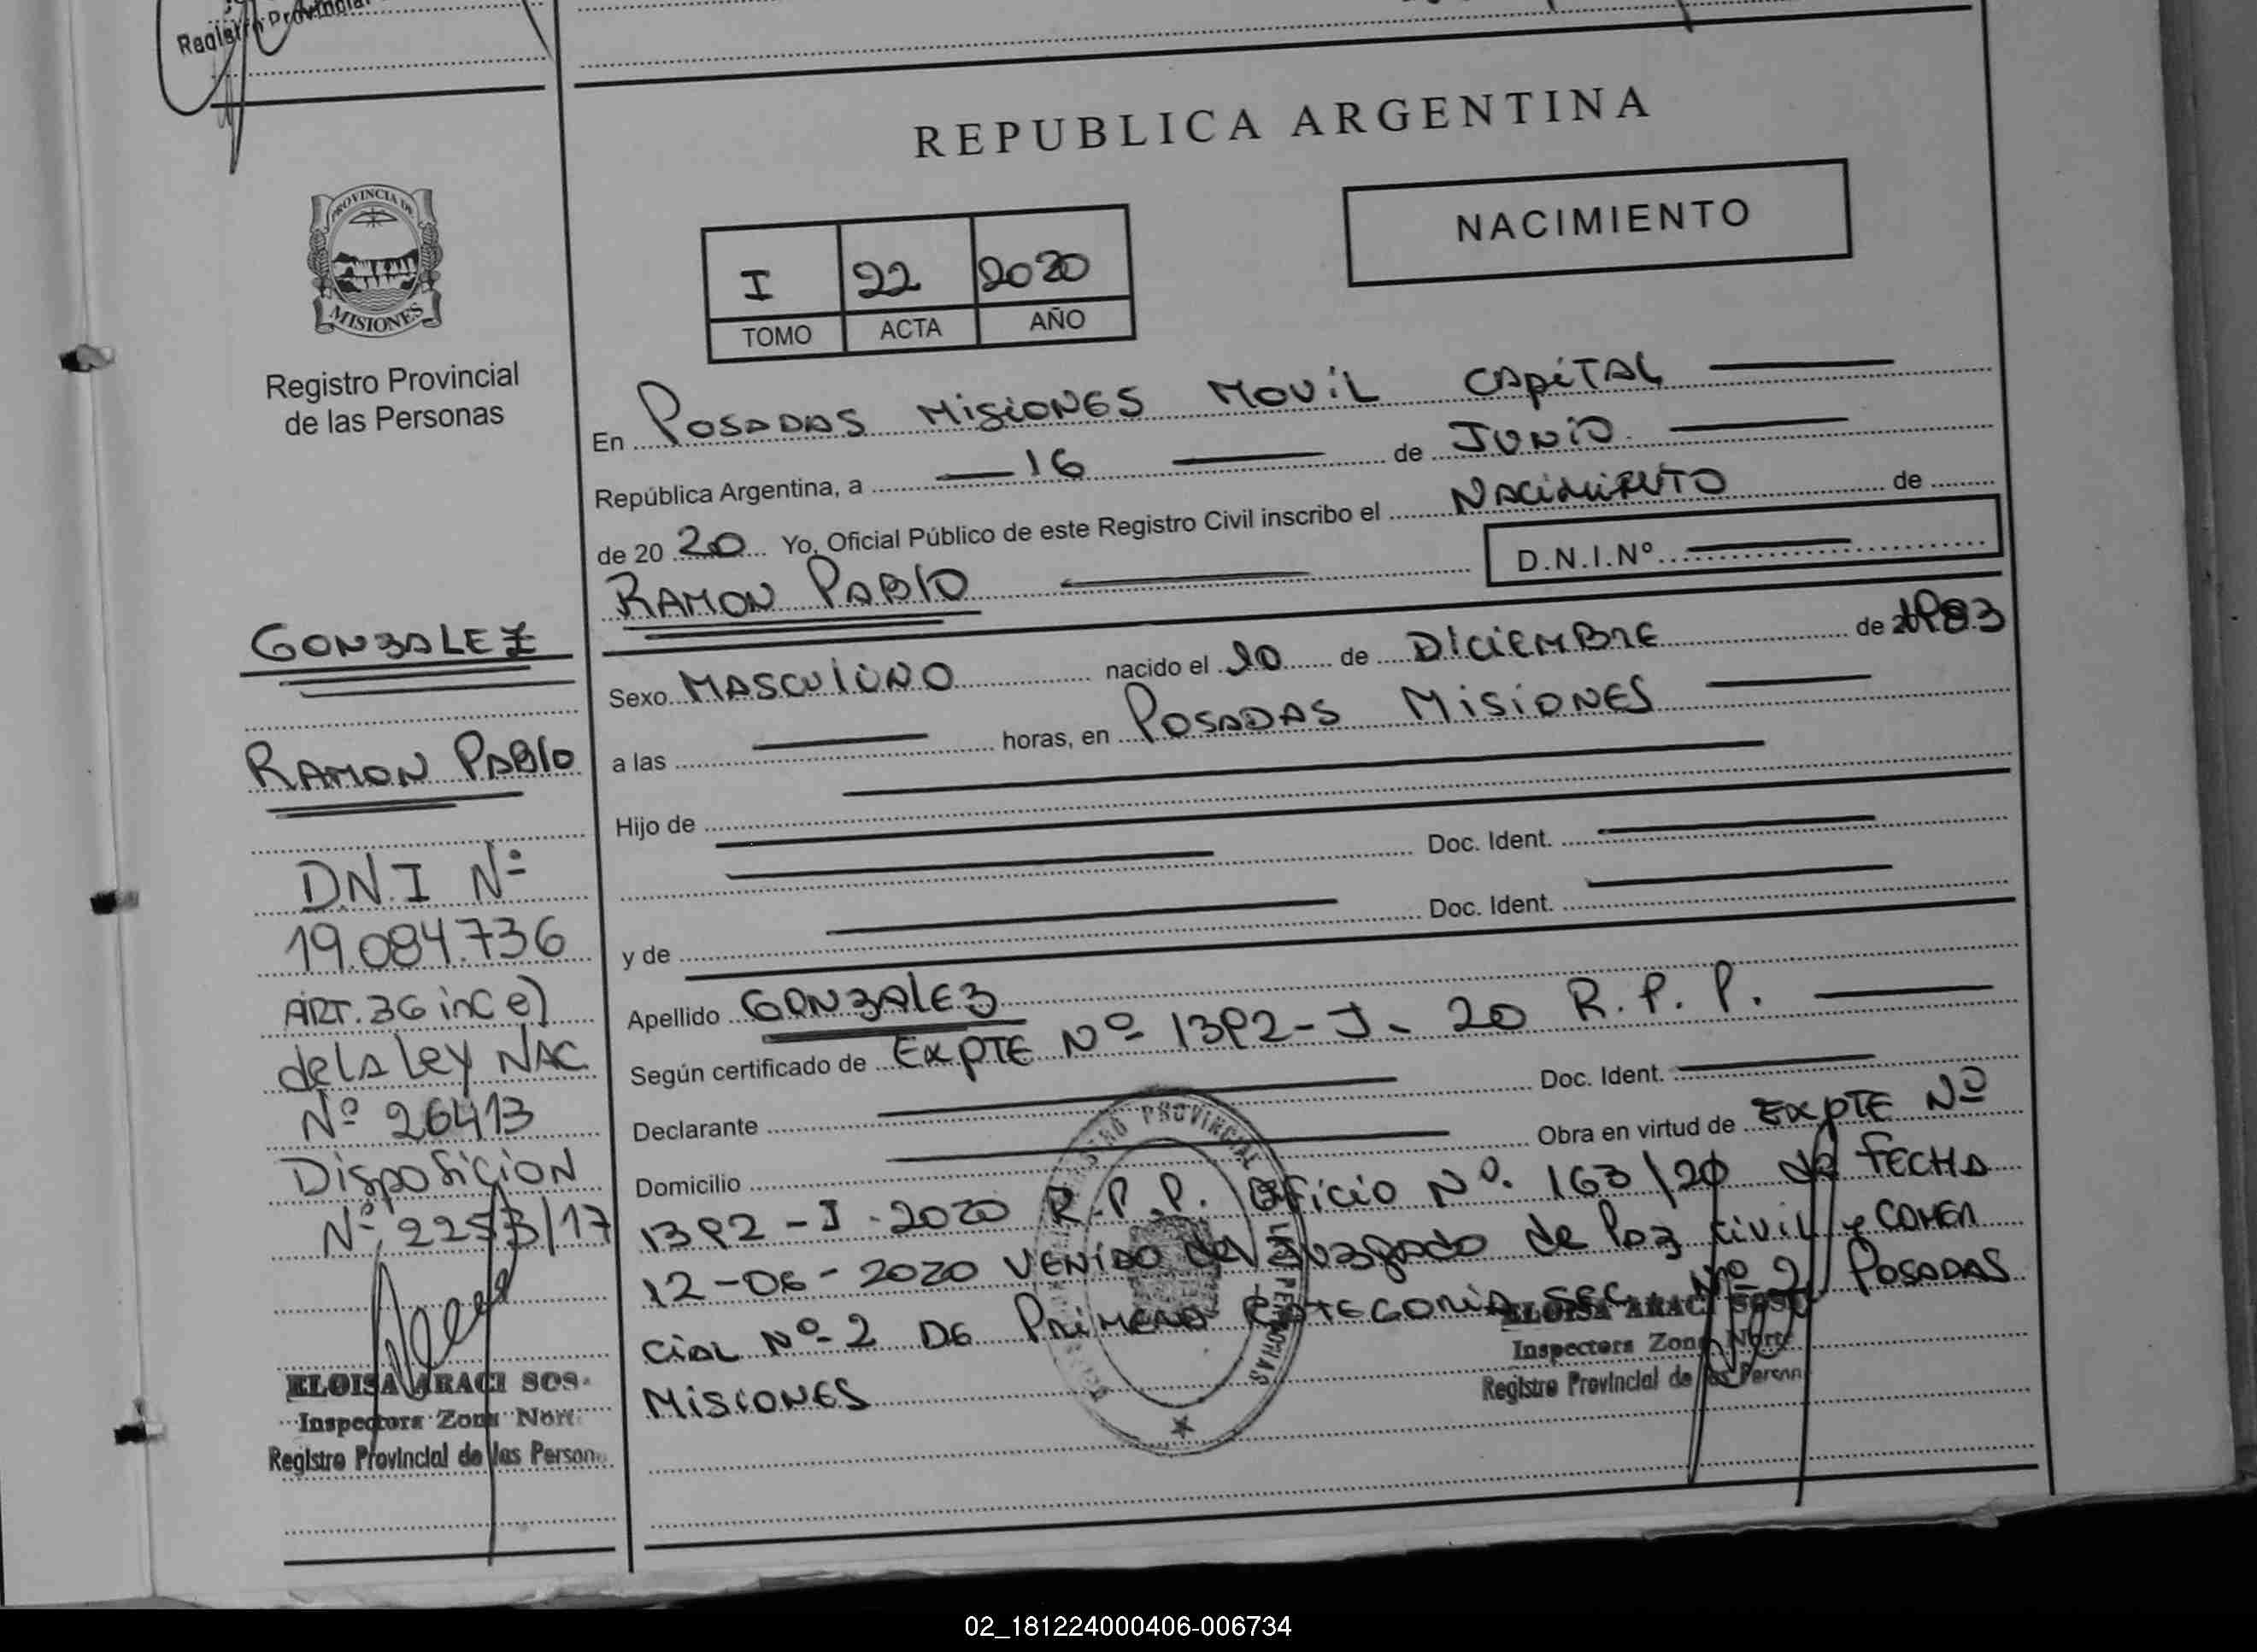 Registro Provincial
REPUBLICA ARGENTINA
PROVINCIA DE
MISIONES
Registro Provincial
de las Personas
NACIMIENTO
I 22 2020
TOMO ACTA AÑO
En POSADAS MISIONES MOVIL CAPITAL
República Argentina, a 16 de JUNIO
de 20 20 Yo, Oficial Público de este Registro Civil inscribo el NACIMIENTO de
RAMON PABLO D.N.I.Nº
Sexo MASCULINO nacido el 20 de DICIEMBRE de 1983
a las horas, en POSADAS MISIONES
Hijo de
Doc. Ident.
y de Doc. Ident.
Apellido GONZALEZ
Según certificado de EXPTE Nº 1392-I- 20 R.P.P.
Declarante Doc. Ident.
Domicilio Obra en virtud de EXPTE Nº
1392-I-2020 R.P.P. Oficio Nº 163/20 de FECHA
12-06-2020 VENIDO del Juzgado de Paz Civil y COMER
CIAL Nº 2 DE PRIMERA CATEGORIA SEC. Nº 2 POSADAS
MISIONES
REGISTRO PROVINCIAL DE LAS PERSONAS
ELOISA ARACI SOSA
Inspectora Zona Norte
Registro Provincial de las Person
GONZALEZ
RAMON PABLO
D.N.I Nº
19.084.736
ART. 36 inc e)
de la Ley NAC
Nº 26413
Disposicion
Nº 2253/17
ELOISA ARACI SOS
Inspectora Zona Nort
Registro Provincial de las Person
02_181224000406-006734